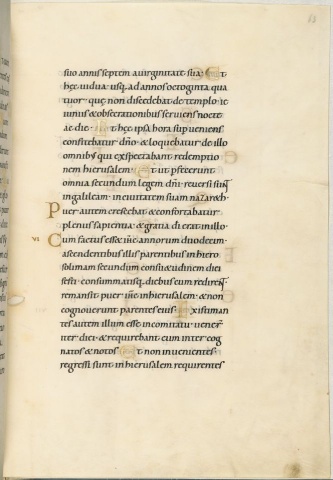 suo annis septem a uirginitate sua. Et
hęc uidua usq; ad annos octoginta qua
tuor. quę non discedebat de templo ie
iuniis & obsecrationibus seruiens nocte
ac die. Et hęc ipsa hora superueniens
confitebatur dño. & loquebatur de illo
omnibus qui exspectabant redemptio
nem hierusalem. Et ut pfecerunt
omnia secundum legem dñi. reuersi sunt
in galileam. in ciuitatem suam nazareth.
Puer autem crescebat & confortabatur
plenus sapientia. & gratia di erat in illo.
VI
Cum factus esset ihc annorum duodecim.
ascendentibus illis parentibus in hiero
solimam secundum consuetudinem diei
festi. consummatisq; diebus cum redirent.
remansit puer ihc in hierusalem. & non
cognouerunt parentes eius. Existiman
tes autem illum esse in comitatu. uenert
iter diei. & requirebant eum inter cog
natos & notos. Et non inuenientes.
regressi sunt in hierusalem requirentes